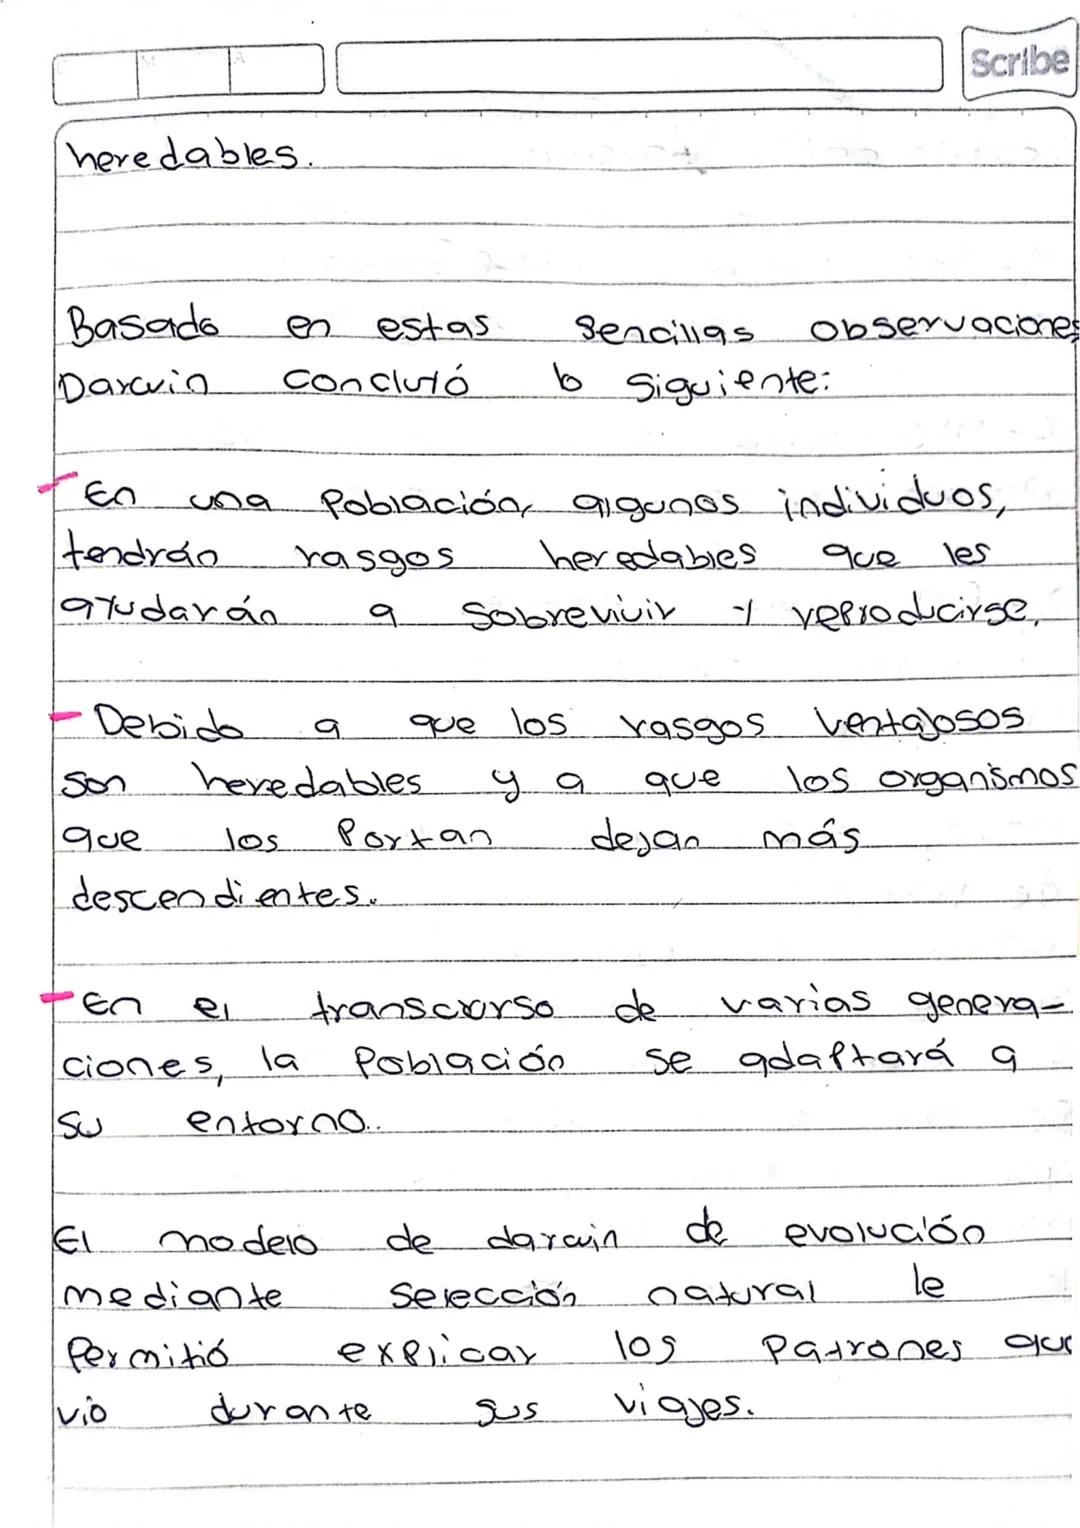 Scribe
heredables.
Basado en estas sencillas observaciones
Darwin concluyó lo siguiente:
- En una población, algunos individuos,
tendrán rasgos heredables que les
ayudarán a sobrevivir y reproducirse.
- Debido a que los rasgos ventajosos
son heredables y a que los organismos
que los portan dejan más
descendientes.
- En el transcurso de varias genera-
ciones, la población se adaptará a
su entorno..
El modelo de darwin de evolución
mediante selección natural le
permitió explicar los patrones que
vio durante sus viajes.